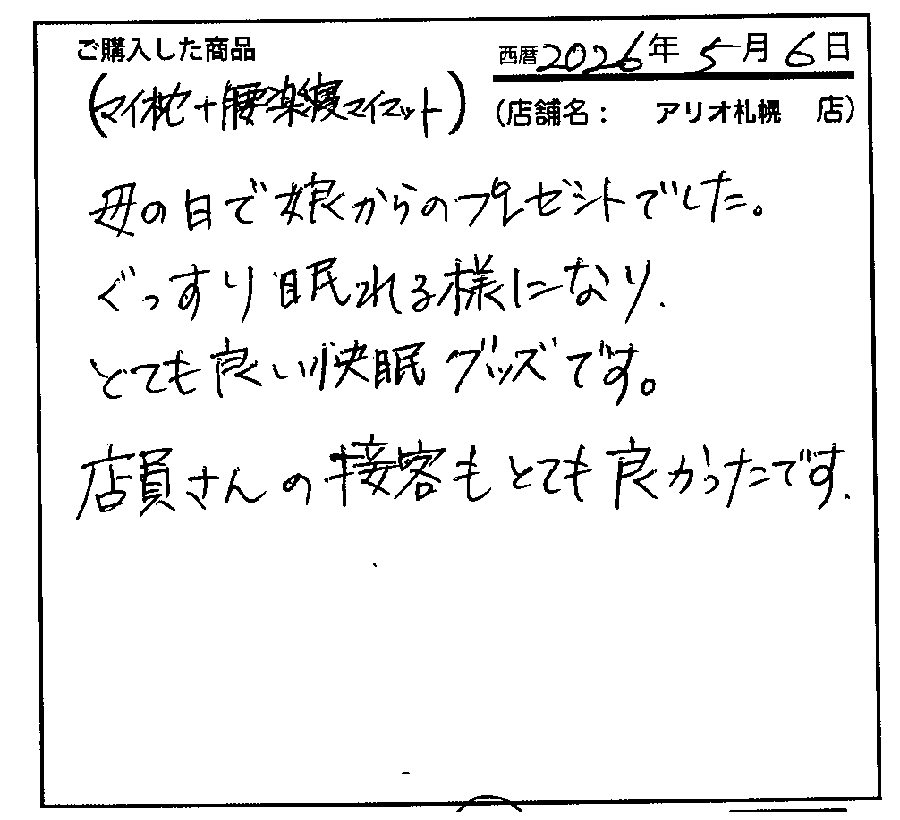 ご購入した商品
西暦2026年5月6日
(マイ枕+腰楽寝マイマット)
(店舗名： アリオ札幌 店)
母の日で娘からのプレゼントでした。
ぐっすり眠れる様になり、
とても良い快眠グッズです。
店員さんの接客もとても良かったです.